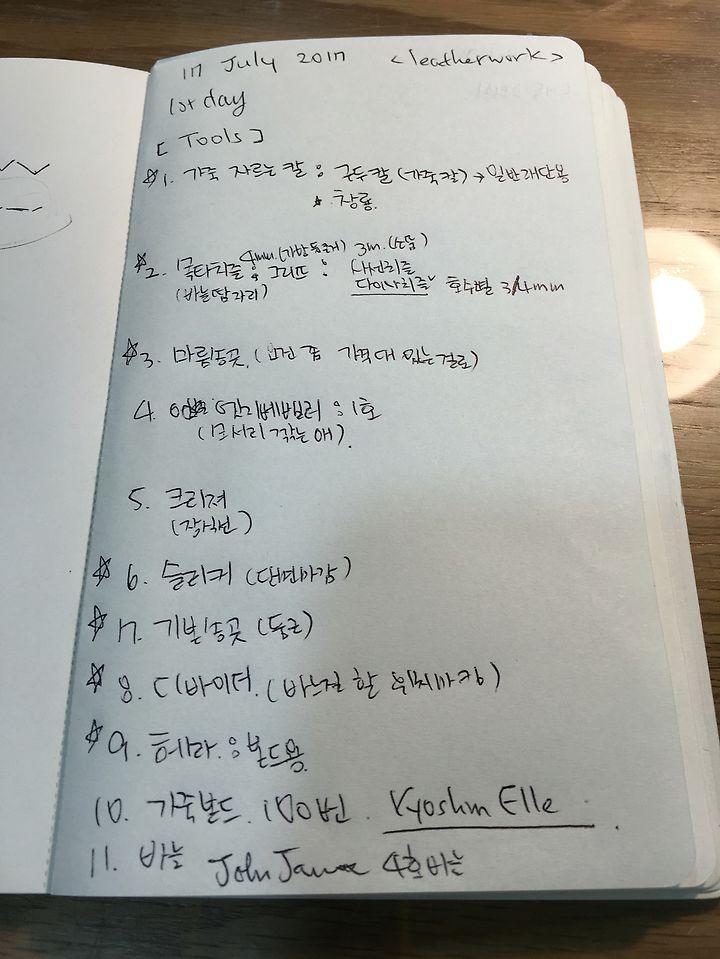 17 July 2017 <leatherwork>
1st day
[Tools]
☆1. 가죽 자르는 칼 : 구두칼 (가죽칼) → 일반재단용
창룡
4mm. (가방 동전지갑) 3m. (소품)
☆2. 목타치즐 : 그리프 : 사선치즐
(바늘땀 자리) 다이사치즐 호수별 3/4mm
☆3. 마름송곳. (있는걸로)
4. 엣지베벨러 : 1호
(모서리 깎는 애).
5. 크리져
(장식선)
☆6. 슬리커 (단면마감)
☆7. 기본송곳 (둥근)
☆8. 디바이더. (바느질 할 위치마킹)
☆9. 헤라 : 본드용
10. 가죽본드. 100번. Kyoshin Elle.
11. 바늘 John James 4호바늘